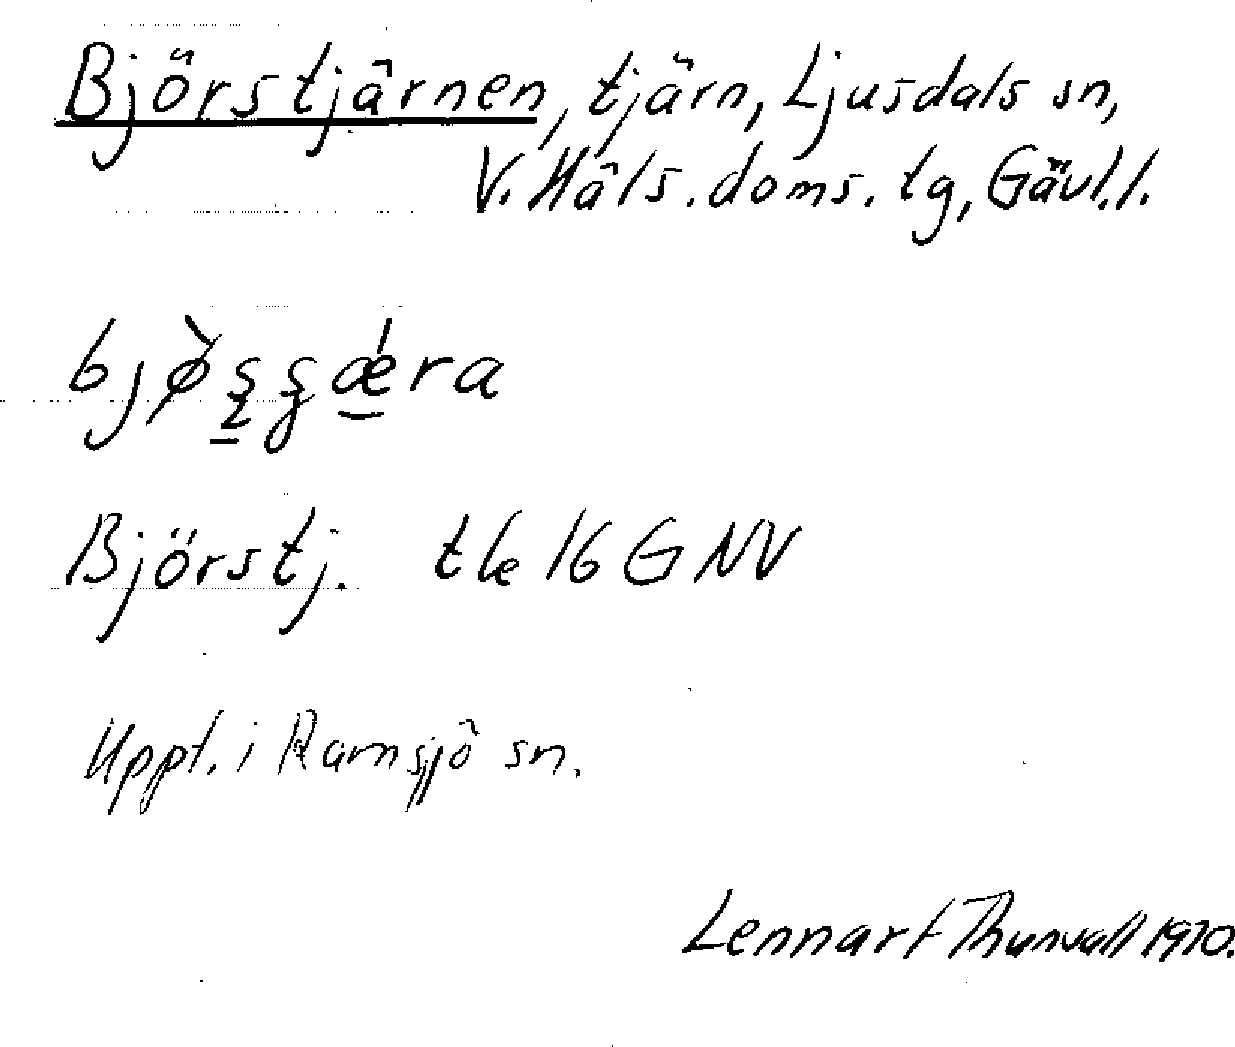 Björstjärnen, tjärn, Ljusdals sn,
V. Häls. doms. tg, Gävl. l.
Björstj. tk 16 G NV
Uppt. i Ramsjö sn.
Lennart Thunvall 1970.